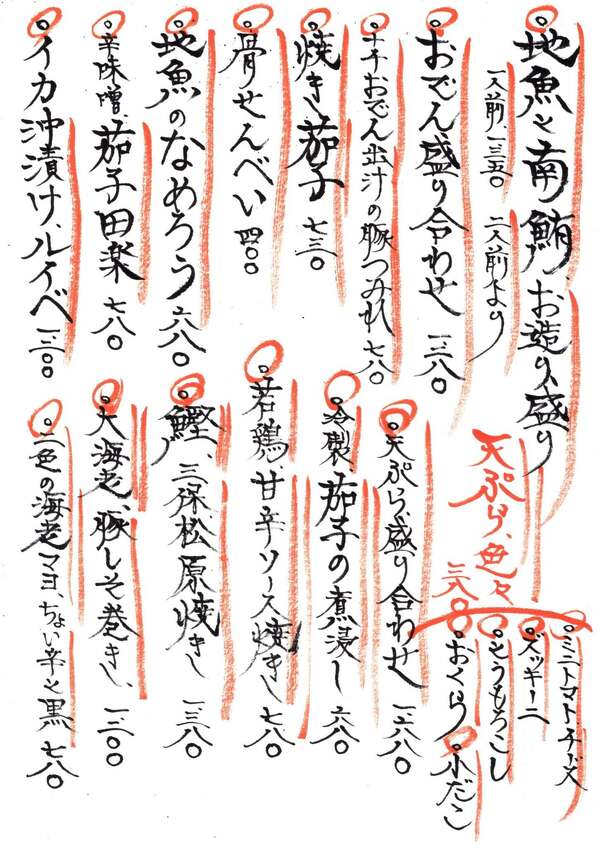 地魚と南鮪、お造り盛り
一人前、一三五〇 二人前より
おでん盛り合わせ 一、一八〇
おでん出汁の豚つみれ 七八〇
焼き茄子 七三〇
骨せんべい 四〇〇
地魚のなめろう 六八〇
辛味噌、茄子田楽 七八〇
イカ沖漬け、ルイベ 一、一〇〇
天ぷら、色々
二八〇
ミニトマト、チーズ
ズッキーニ
とうもろこし
おくら
小だこ
天ぷら、盛り合わせ 一、六八〇
冷製、茄子の煮浸し 六八〇
若鶏、甘辛ソース焼き 七八〇
鰹、三保松原焼き 一、三八〇
大海老、豚しそ巻き、一、一〇〇
二色の海老マヨ、ちょい辛と黒 七八〇